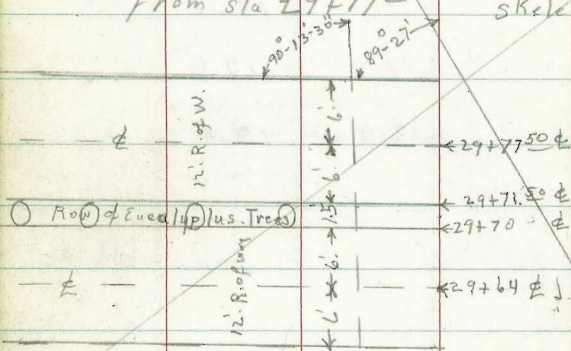 from sta 29+77
90°-13'-30"
89°-27'
12' R. of W.
6'
℄
29+77 50 ℄
6'
29+71.50 ℄
Row of Eucalyplus. Trees
1.5'
29+70 ℄
6'
12' R. of way
℄
29+64 ℄
6'